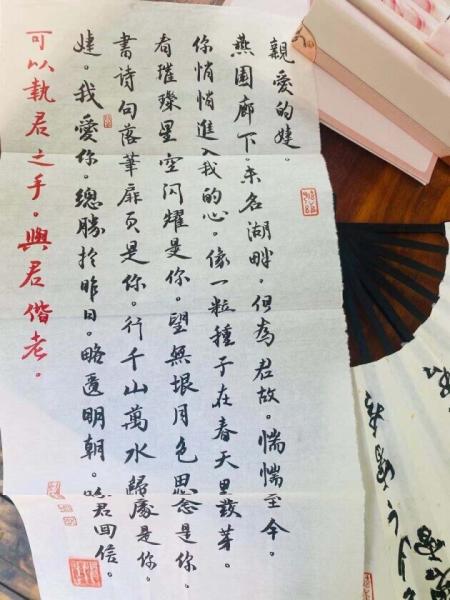 親愛的婕。
燕園廊下。未名湖畔。但為君故。惴惴至今。
你悄悄進入我的心。像一粒種子在春天里發芽。
看璀璨星空閃耀是你。望無垠月色思念是你。
書詩句落筆扉頁是你。行千山萬水歸處是你。
婕。我愛你。總勝於昨日。略遜明朝。盼君回信。
可以執君之手。與君偕老。